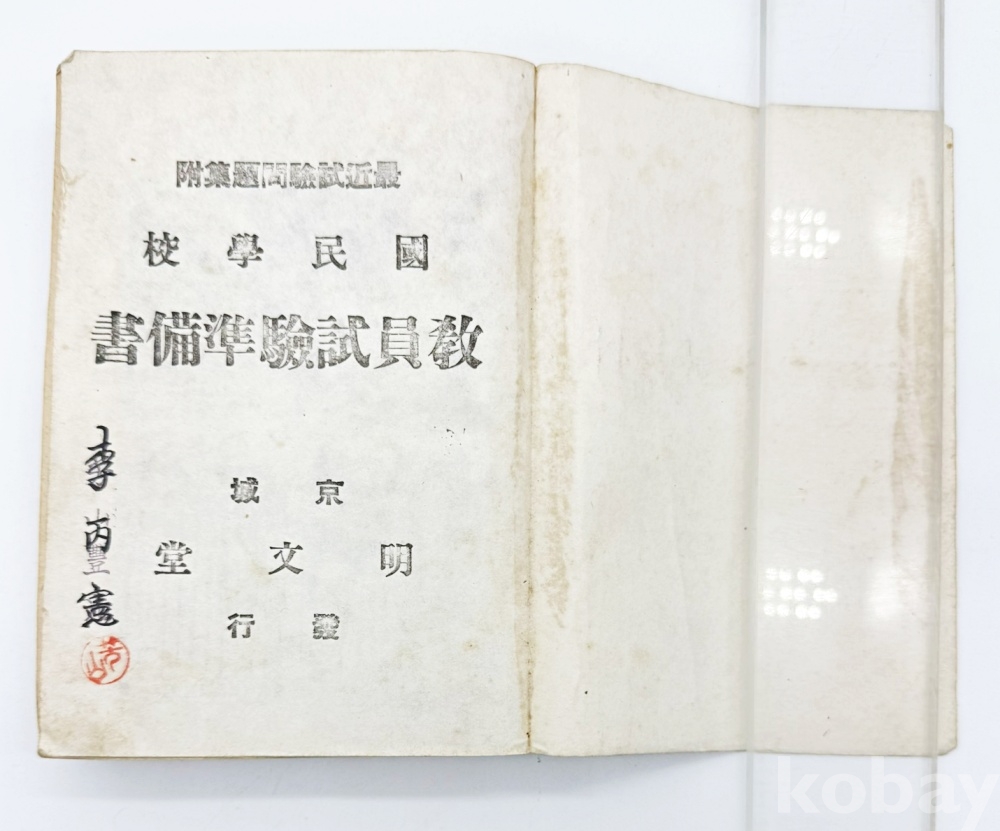 最近試驗問題集附
國民學校
敎員試驗準備書
京城
明文堂
發行
李丙豊憲
kobay